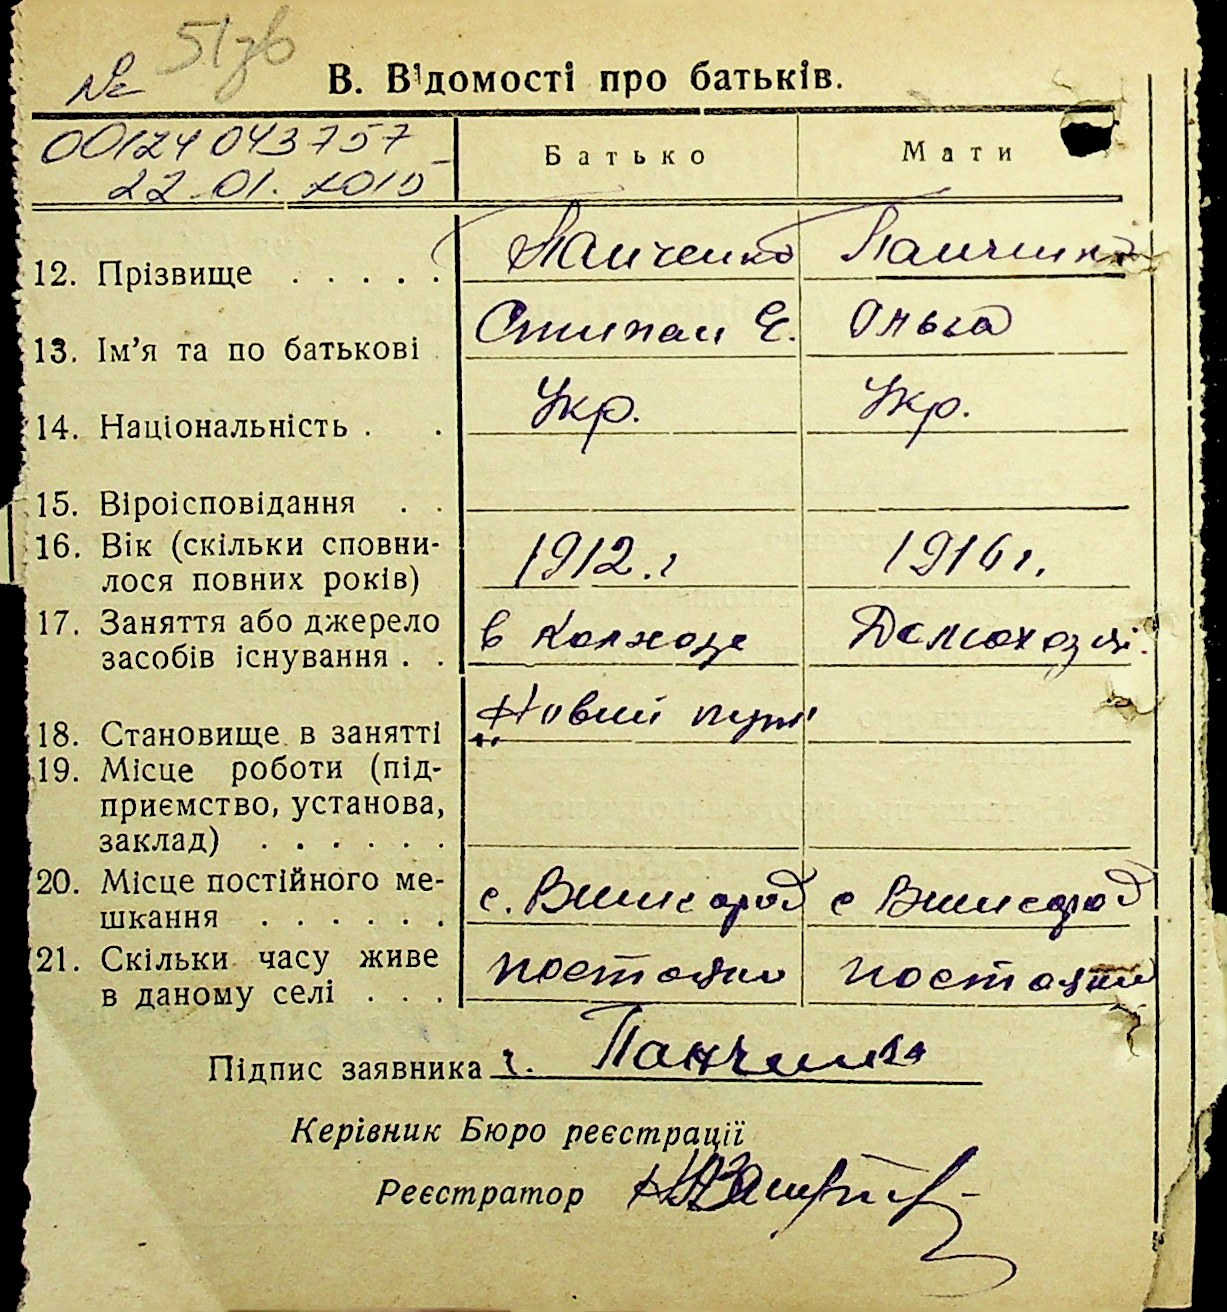 № 51зв
В. Відомості про батьків.
00124043757
22.01.2015
Батько Мати
12. Прізвище . . . . . Панченко Панченко
13. Ім'я та по батькові Степан Е. Ольга
14. Національність . . Укр. Укр.
15. Віроісповідання . .
16. Вік (скільки сповни- 1912.г 1916г.
лося повних років)
17. Заняття або джерело в Колхозе Домохозяй.
засобів існування . .
18. Становище в занятті Новий путь
19. Місце роботи (під-
приємство, установа,
заклад) . . . . . .
20. Місце постійного ме- с. Вишгород с Вишгород
шкання . . . . . .
21. Скільки часу живе постоянно постоянно
в даному селі . . .
Підпис заявника Панченко
Керівник Бюро реєстрації
Реєстратор